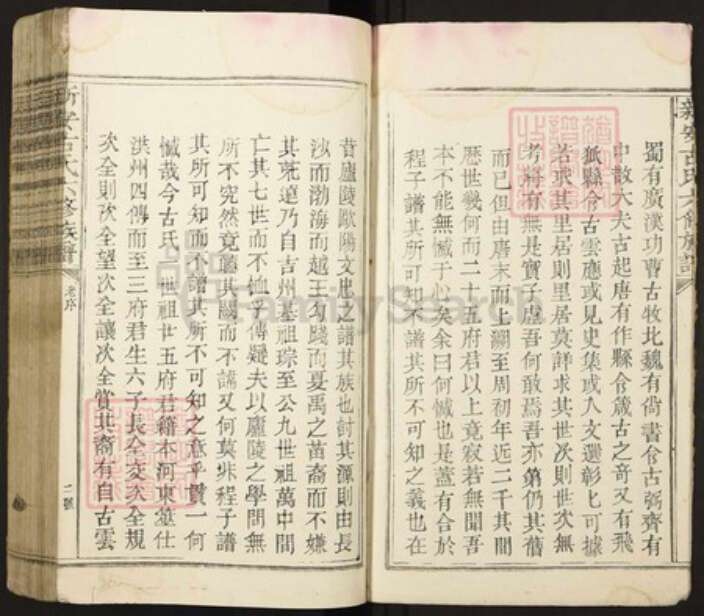 新安古氏六修族譜
蜀有廣漢功曹古牧北魏有尙書令古弼齊有
中散大夫古起唐有作縣令箴古之奇又有飛
狐縣令古雲應或見史集或入文選彰彰可據
若求其里居則里居莫詳求其世次則世次無
考將有無是實子虛吾何敢焉吾亦第仍其舊
而已但由唐末而上溯至周初年近二千其間
歷世幾何而二十五府君以上竟寂若無聞吾
本不能無憾于心矣余曰何憾也是蓋有合於
程子譜其所可知不譜其所不可知之義也在
昔廬陵歐陽文忠之譜其族也討其源則由長
沙而渤海而越王勾踐而夏禹之苗裔而不嫌
其荒遠乃自吉州基祖琮至公九世祖萬中間
亡其七世而不恤乎傳疑夫以廬陵之學問無
所不究然竟闕其闕而不譜又何莫非程子譜
其所可知而不譜其所不可知之意乎贊一何
憾哉今古氏一世祖廿五府君籍本河東筮仕
洪州四傳而至三府君生六子長全交次全規
次全則次全望次全讓次全賞其裔有自古雲
新安古氏六修族譜
老序
二號
FamilySearch